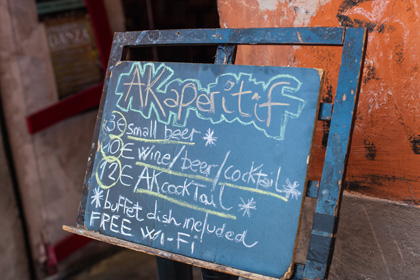 AKaperitif
5€ small beer *
10€ wine/beer/cocktail *
12€ AKcocktail *
* buffet dish included
FREE WI-FI